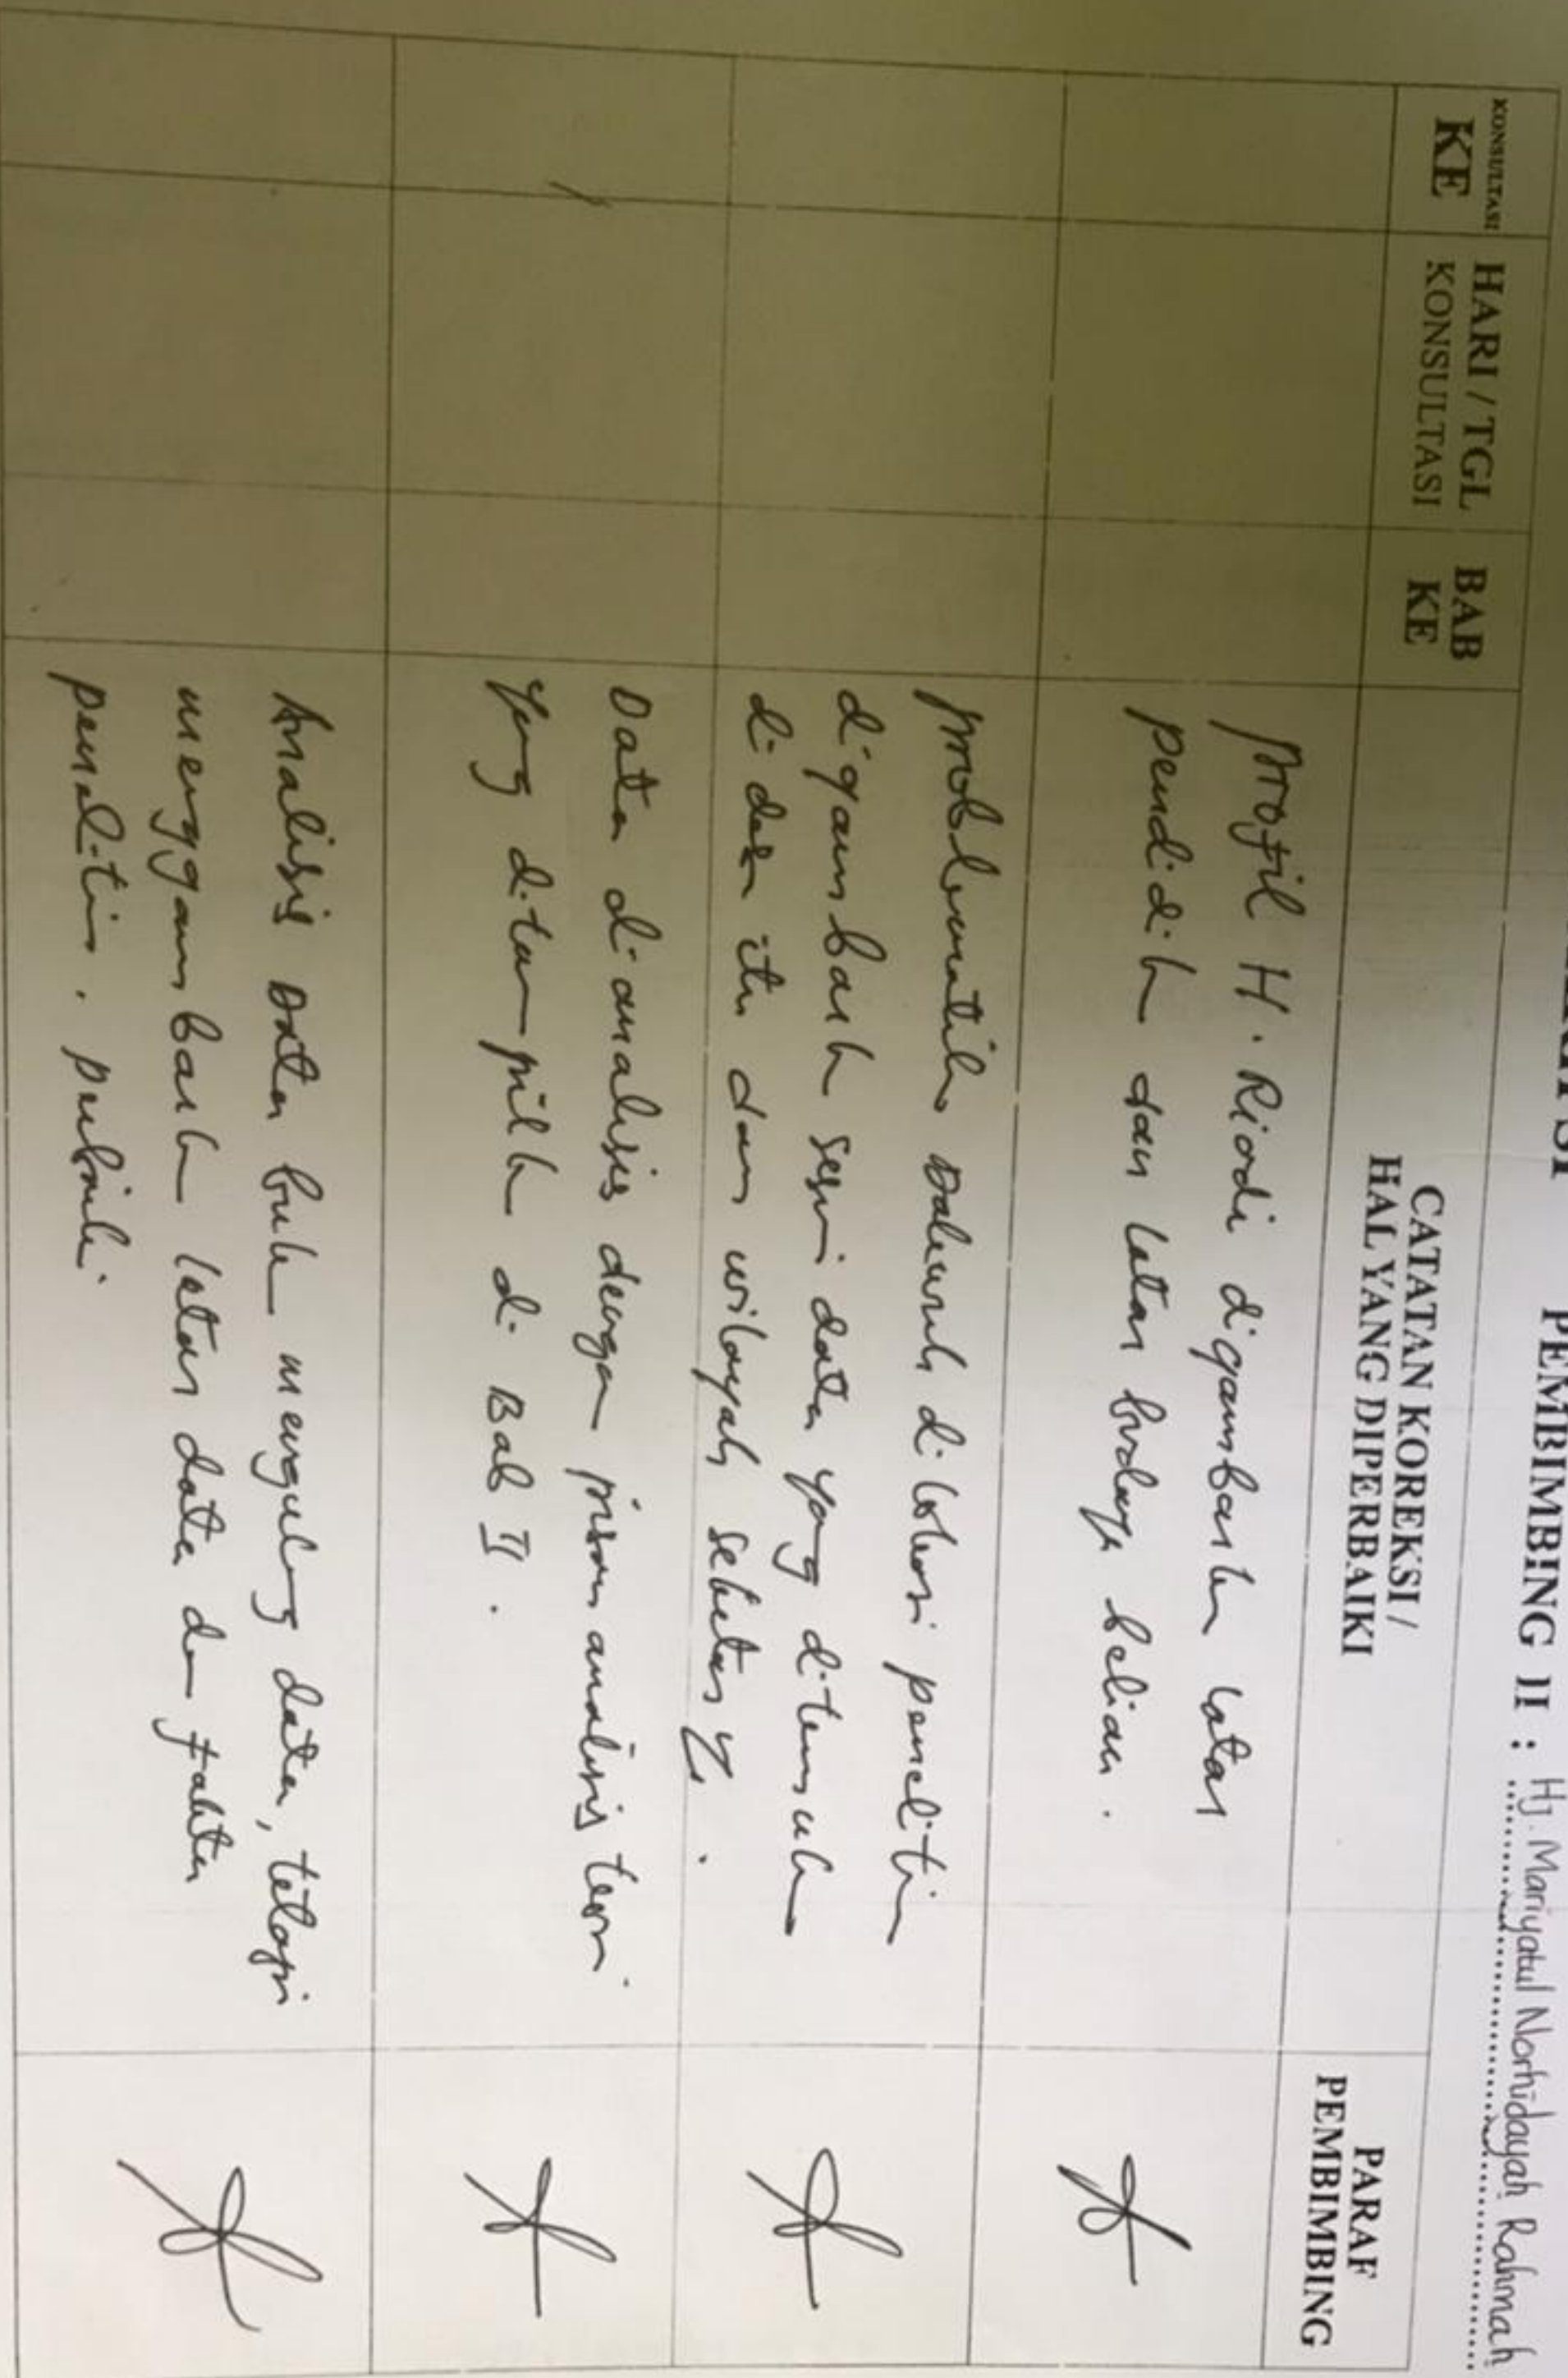 PEMBIMBING II : Hj. Mariyatul Norhidayah Rahmah
KONSULTASI KE
HARI / TGL KONSULTASI
BAB KE
CATATAN KOREKSI / HAL YANG DIPERBAIKI
PARAF PEMBIMBING
Profil H. Riodi digambarkan latar
pendidikan dan latar budaya beliau.
Problematika Dakwah di lokasi penelitian
digambarkan sesuai data yang ditemukan
di desa itu dan wilayah sekitar
Data dianalisis dengan pisau analisis teori
yang ditampilkan di Bab II.
Analisis Data bukan mengulang data, tetapi
menggambarkan latar data dan fakta
penelitian. perbaiki